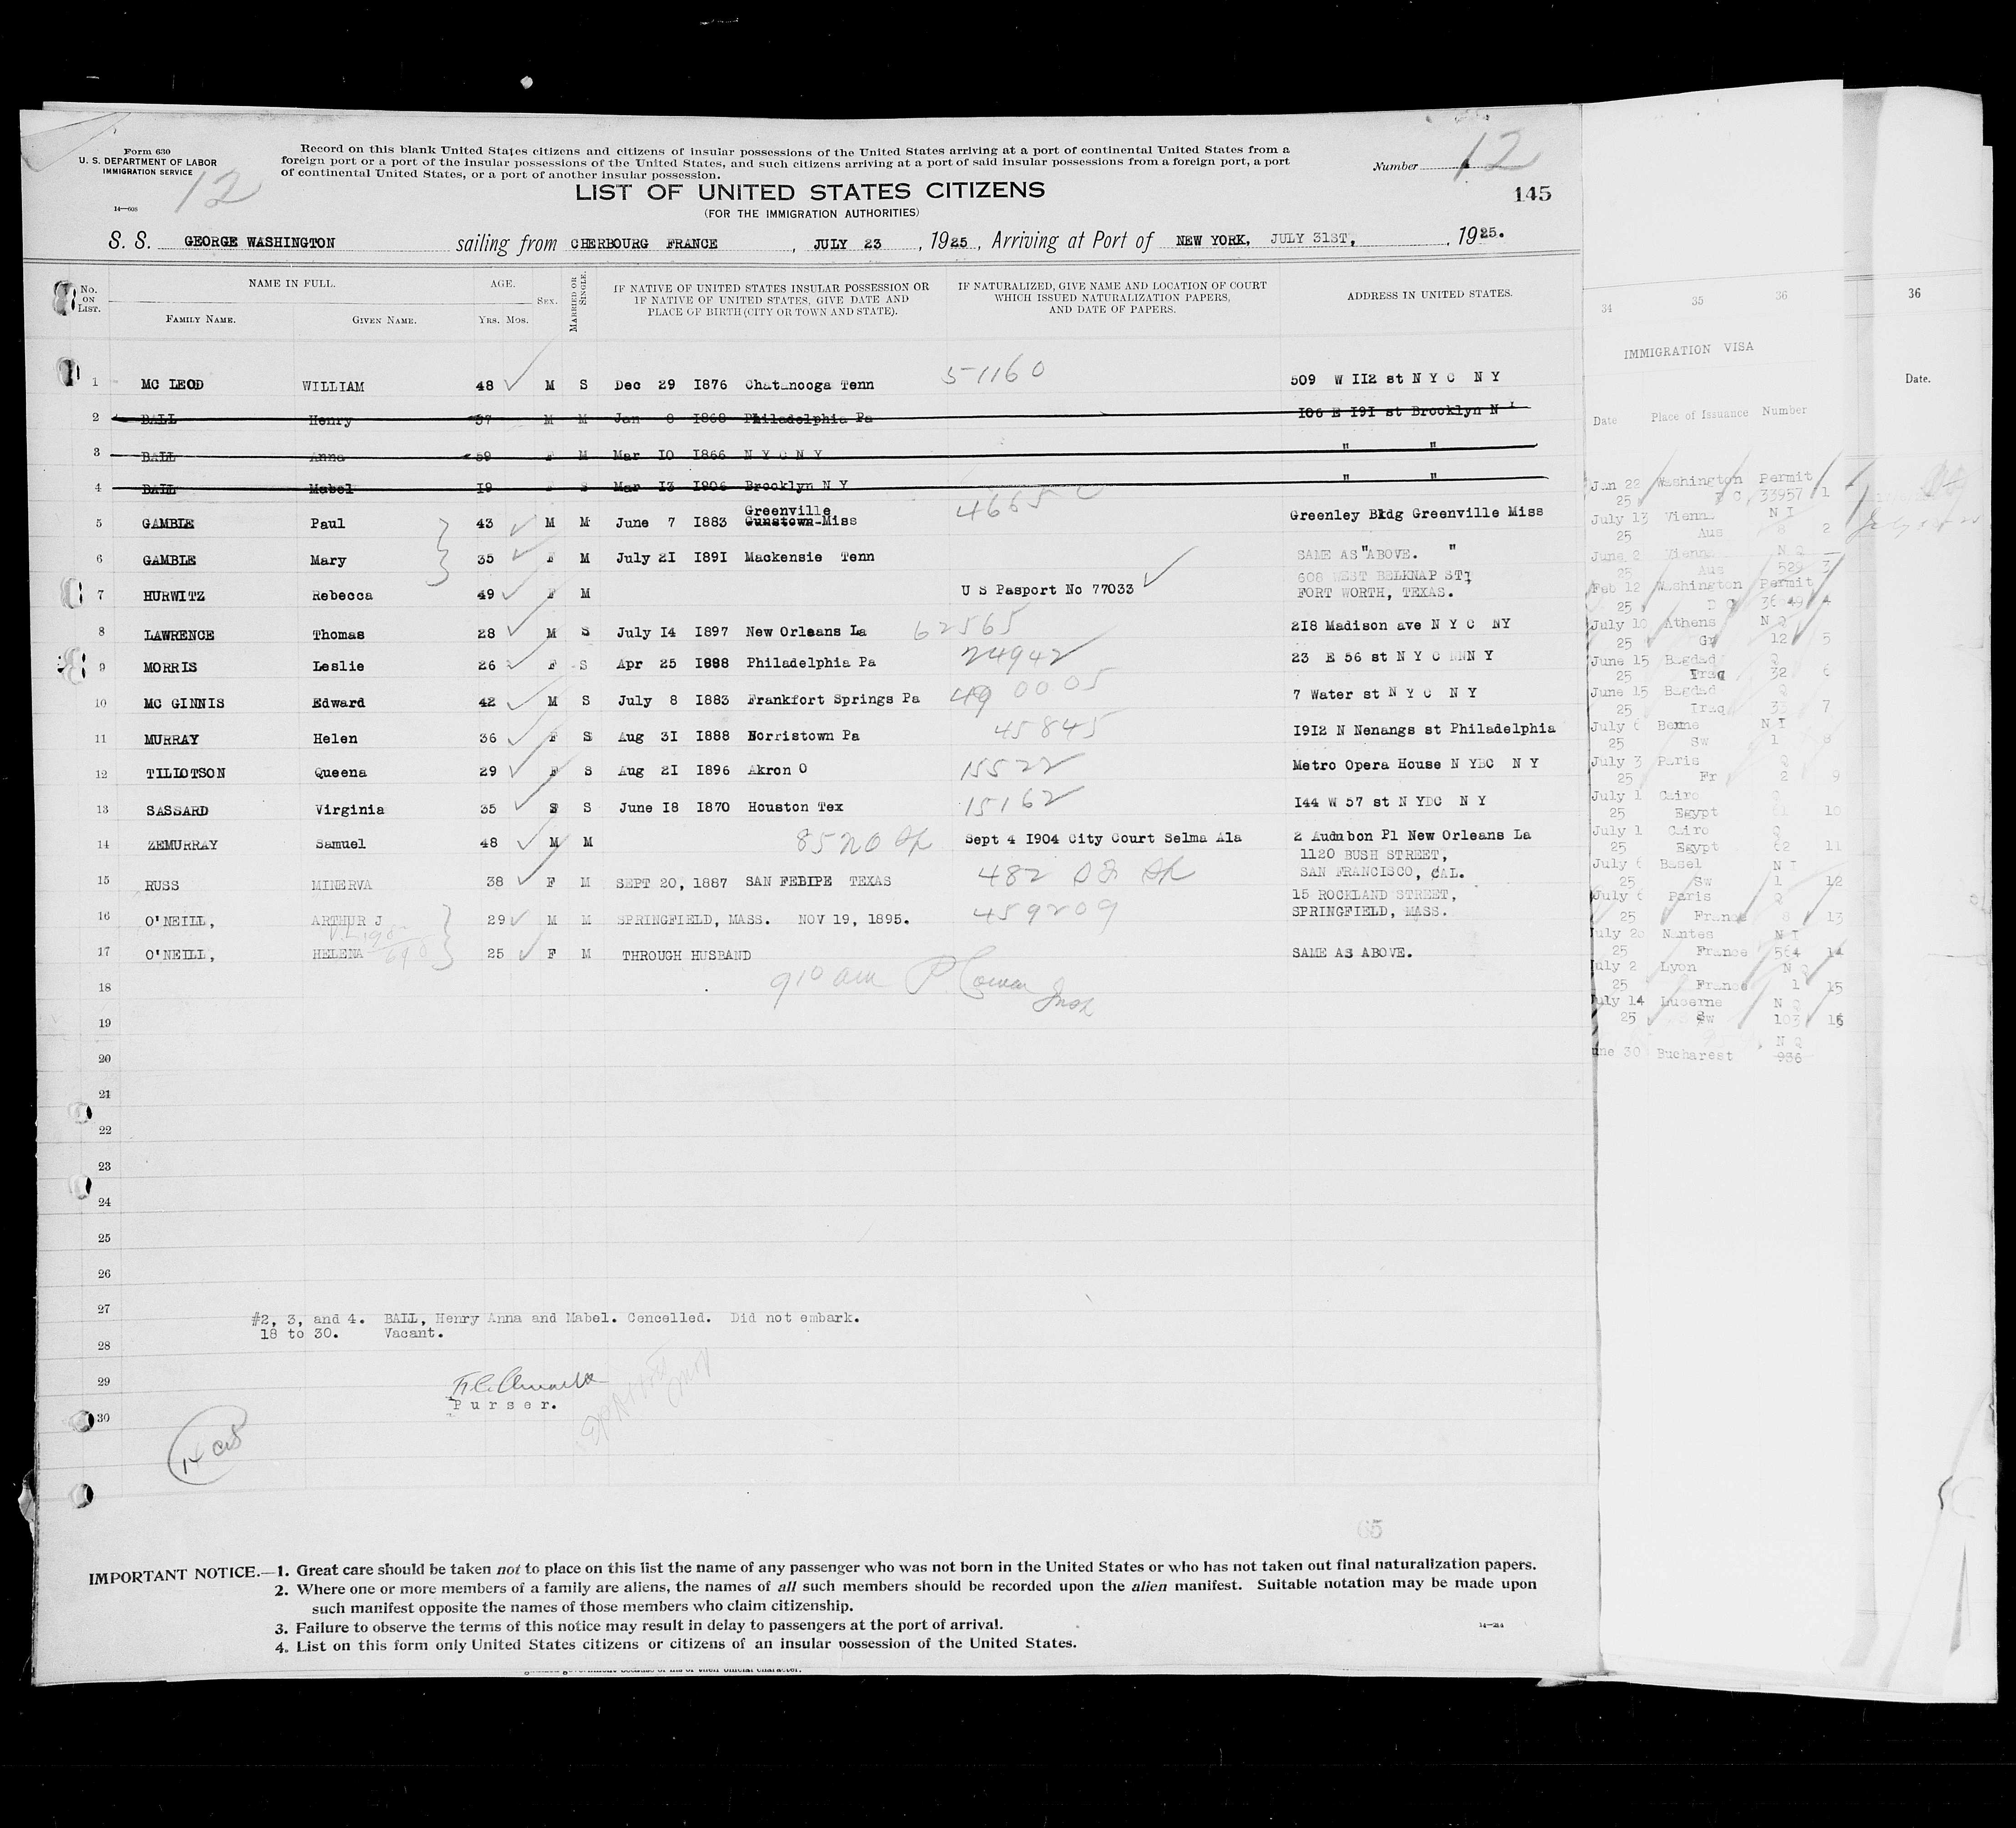 Form 630
U. S. DEPARTMENT OF LABOR
IMMIGRATION SERVICE
12
14—608
Record on this blank United States citizens and citizens of insular possessions of the United States arriving at a port of continental United States from a
foreign port or a port of the insular possessions of the United States, and such citizens arriving at a port of said insular possessions from a foreign port, a port
of continental United States, or a port of another insular possession.
Number 12
145
LIST OF UNITED STATES CITIZENS
(FOR THE IMMIGRATION AUTHORITIES)
S. S. GEORGE WASHINGTON sailing from CHERBOURG FRANCE, JULY 23, 1925, Arriving at Port of NEW YORK, JULY 31ST, , 1925.
No. ON LIST. NAME IN FULL. FAMILY NAME. GIVEN NAME. AGE. YRS. MOS. SEX. MARRIED OR SINGLE. IF NATIVE OF UNITED STATES INSULAR POSSESSION OR IF NATIVE OF UNITED STATES, GIVE DATE AND PLACE OF BIRTH (CITY OR TOWN AND STATE). IF NATURALIZED, GIVE NAME AND LOCATION OF COURT WHICH ISSUED NATURALIZATION PAPERS, AND DATE OF PAPERS. ADDRESS IN UNITED STATES.
1 MC LEOD WILLIAM 48 M S Dec 29 I876 Chatanooga Tenn 51160 509 W II2 st N Y C N Y
2 BALL Henry 57 M M Jan 8 I868 Philadelphia Pa I06 E I9I st Brooklyn N Y
3 BALL Anna 59 F M Mar I0 I866 N Y C N Y " "
4 BALL Mabel I9 F S Mar I3 I906 Brooklyn N Y " "
5 GAMBLE Paul 43 M M June 7 I883 Greenville Gunstown-Miss Greenley Bldg Greenville Miss
6 GAMBLE Mary 35 F M July 2I I89I Mackensie Tenn SAME AS "ABOVE. "
608 WEST BELKNAP ST,
7 HURWITZ Rebecca 49 F M U S Pasport No 77033 FORT WORTH, TEXAS.
8 LAWRENCE Thomas 28 M S July I4 I897 New Orleans La 62565 2I8 Madison ave N Y C NY
9 MORRIS Leslie 26 F S Apr 25 I898 Philadelphia Pa 24942 23 E 56 st N Y C N Y
10 MC GINNIS Edward 42 M S July 8 I883 Frankfort Springs Pa 490005 7 Water st N Y C N Y
11 MURRAY Helen 36 F S Aug 3I I888 Norristown Pa 45845 I9I2 N Nenangs st Philadelphia
12 TILLOTSON Queena 29 F S Aug 2I I896 Akron O 15522 Metro Opera House N YBC N Y
13 SASSARD Virginia 35 S S June I8 I870 Houston Tex 15162 I44 W 57 st N YDC N Y
14 ZEMURRAY Samuel 48 M M 8520 Sept 4 I904 City Court Selma Ala 2 Audubon Pl New Orleans La
1120 BUSH STREET,
15 RUSS MINERVA 38 F M SEPT 20, 1887 SAN FELIPE TEXAS 482 SAN FRANCISCO, CAL.
15 ROCKLAND STREET,
16 O'NEILL, ARTHUR J 29 M M SPRINGFIELD, MASS. NOV 19, 1895. 459209 SPRINGFIELD, MASS.
17 O'NEILL, HELENA 25 F M THROUGH HUSBAND SAME AS ABOVE.
18 910 am
19
20
21
22
23
24
25
26
27
#2, 3, and 4. BALL, Henry Anna and Mabel. Cancelled. Did not embark.
18 to 30. Vacant.
28
29
Purser.
30
65
IMPORTANT NOTICE.—1. Great care should be taken not to place on this list the name of any passenger who was not born in the United States or who has not taken out final naturalization papers.
2. Where one or more members of a family are aliens, the names of all such members should be recorded upon the alien manifest. Suitable notation may be made upon
such manifest opposite the names of those members who claim citizenship.
3. Failure to observe the terms of this notice may result in delay to passengers at the port of arrival.
4. List on this form only United States citizens or citizens of an insular possession of the United States.
14—214
34 35 36
IMMIGRATION VISA
Date Place of Issuance Number
Jan 22 Washington Permit
25 D C, 33957 1
July 13 Vienna N I
25 Aus 8 2
June 2 Vienna N Q
25 Aus 529 3
Feb 12 Washington Permit
25 D C 4
July 10 Athens N Q
25 Gr 12 5
June 15 Bagdad Q
25 Iraq 32 6
June 15 Bagdad Q
25 Iraq 33 7
July 6 Berne N I
25 Sw 1 8
July 3 Paris Q
25 Fr 2 9
July 1 Cairo Q
25 Egypt 61 10
July 1 Cairo Q
25 Egypt 62 11
July 6 Basel N I
25 Sw 1 12
July 6 Paris Q
25 France 8 13
July 20 Nantes N I
25 France 564 14
July 2 Lyon N Q
25 France 1 15
July 14 Lucerne N Q
25 Sw 103 16
N Q
une 30 Bucharest 936
36
Date.